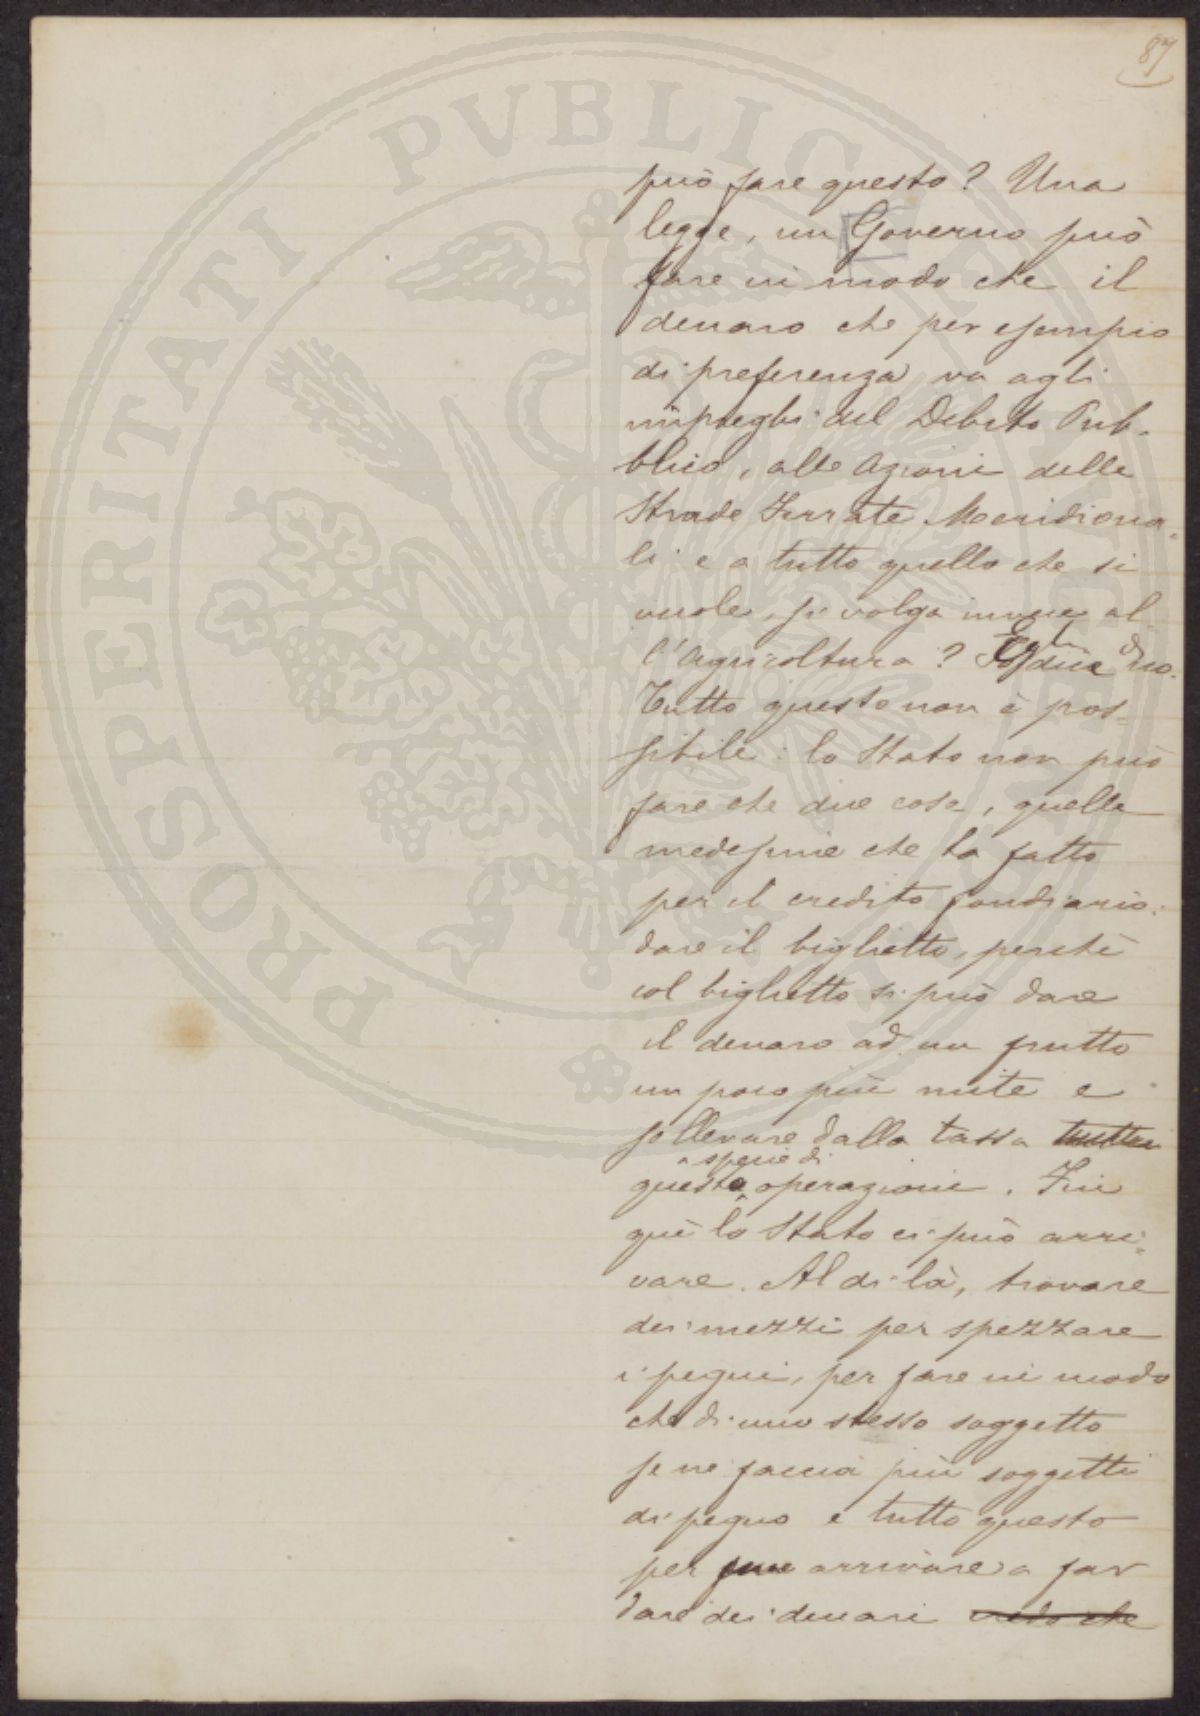 87
può fare questo? Una
legge, un Governo può
fare in modo che il
denaro che per esempio
di preferenza va agli
impieghi del Debito Pub-
blico, alle Azioni delle
Strade Ferrate Meridiona-
li e a tutto quello che si
vuole, si volga invece al-
l'Agricoltura? dice no.
Tutto questo non è pos-
sibile: lo Stato non può
fare che due cose, quelle
medesime che ha fatto
per il credito fondiario:
dare il biglietto, perchè
col biglietto si può dare
il denaro ad un frutto
un poco più mite e
sollevare dalla tassa tutte
specie di
questa operazioni. Fin
quì lo Stato ci può arri-
vare. Al di là, trovare
dei mezzi per spezzare
i pegni, per fare in modo
che di uno stesso soggetto
se ne faccia più soggetti
di pegno e tutto questo
per arrivare a far
dare dei denari credo che
PROSPERITATI PVBLICAE